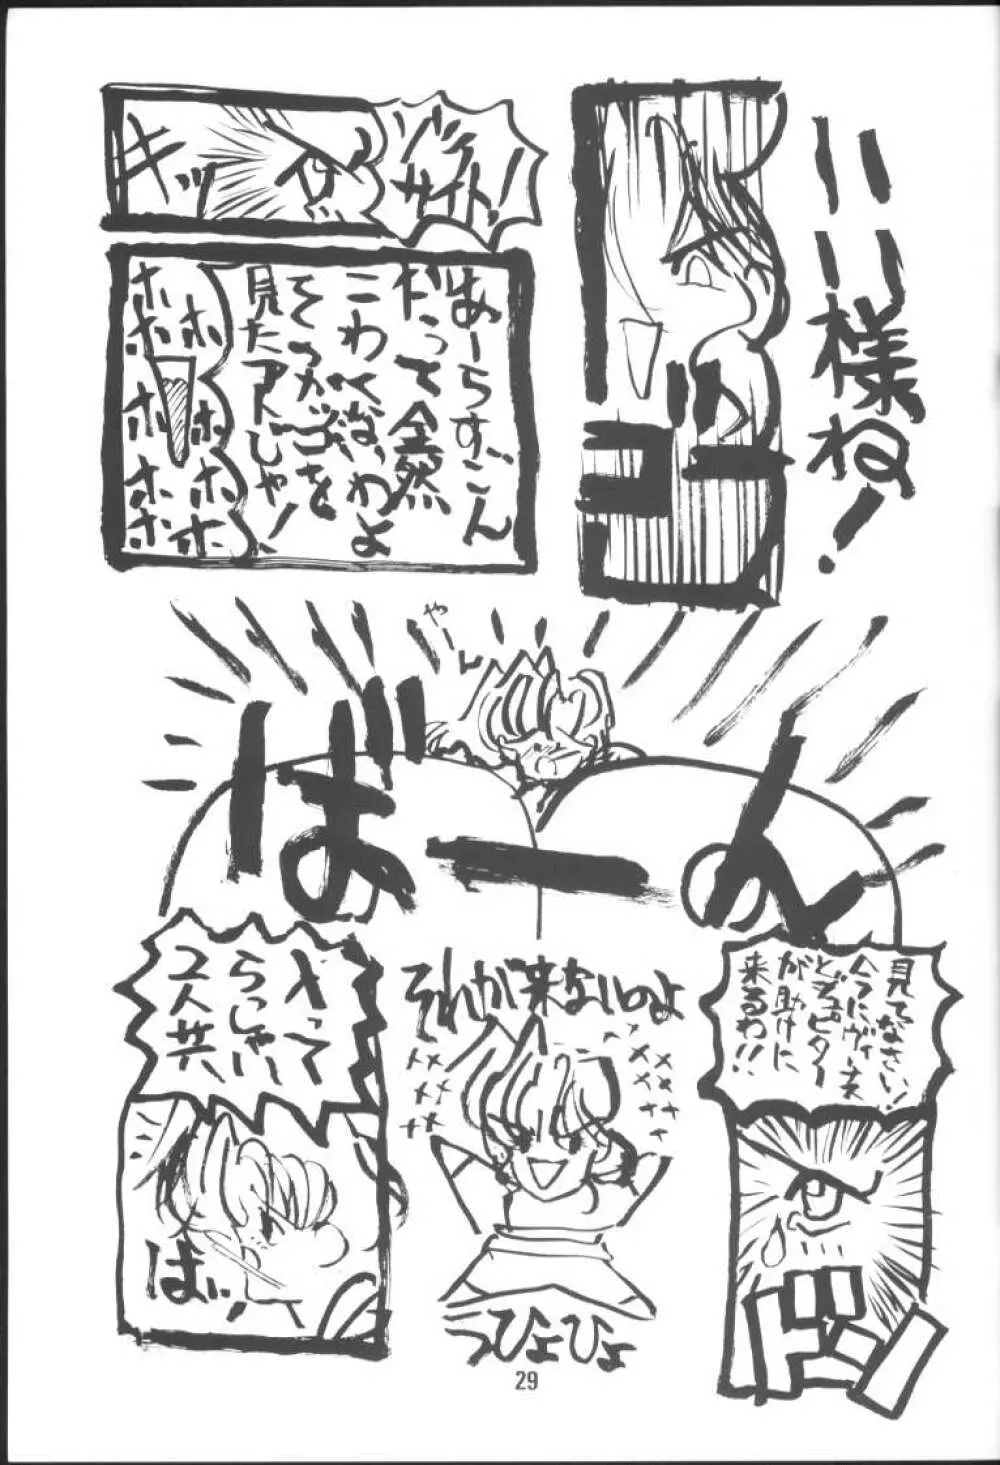 いい様ね!
ジーッ
ゾイサイト!
キッ
あーらすごん
だって全然
こわくないわよ
そうカゴを
見たアトじゃ!
ホホホホホホ
ホホホホホホ
やーん
ばーん
見てなさい!
今にヴィーナス
とジュピター
が助けに
来るわ!!
ドーン
それが来ないのよ
うひょひょ
入って
らっしゃい
2人共
はい!
29